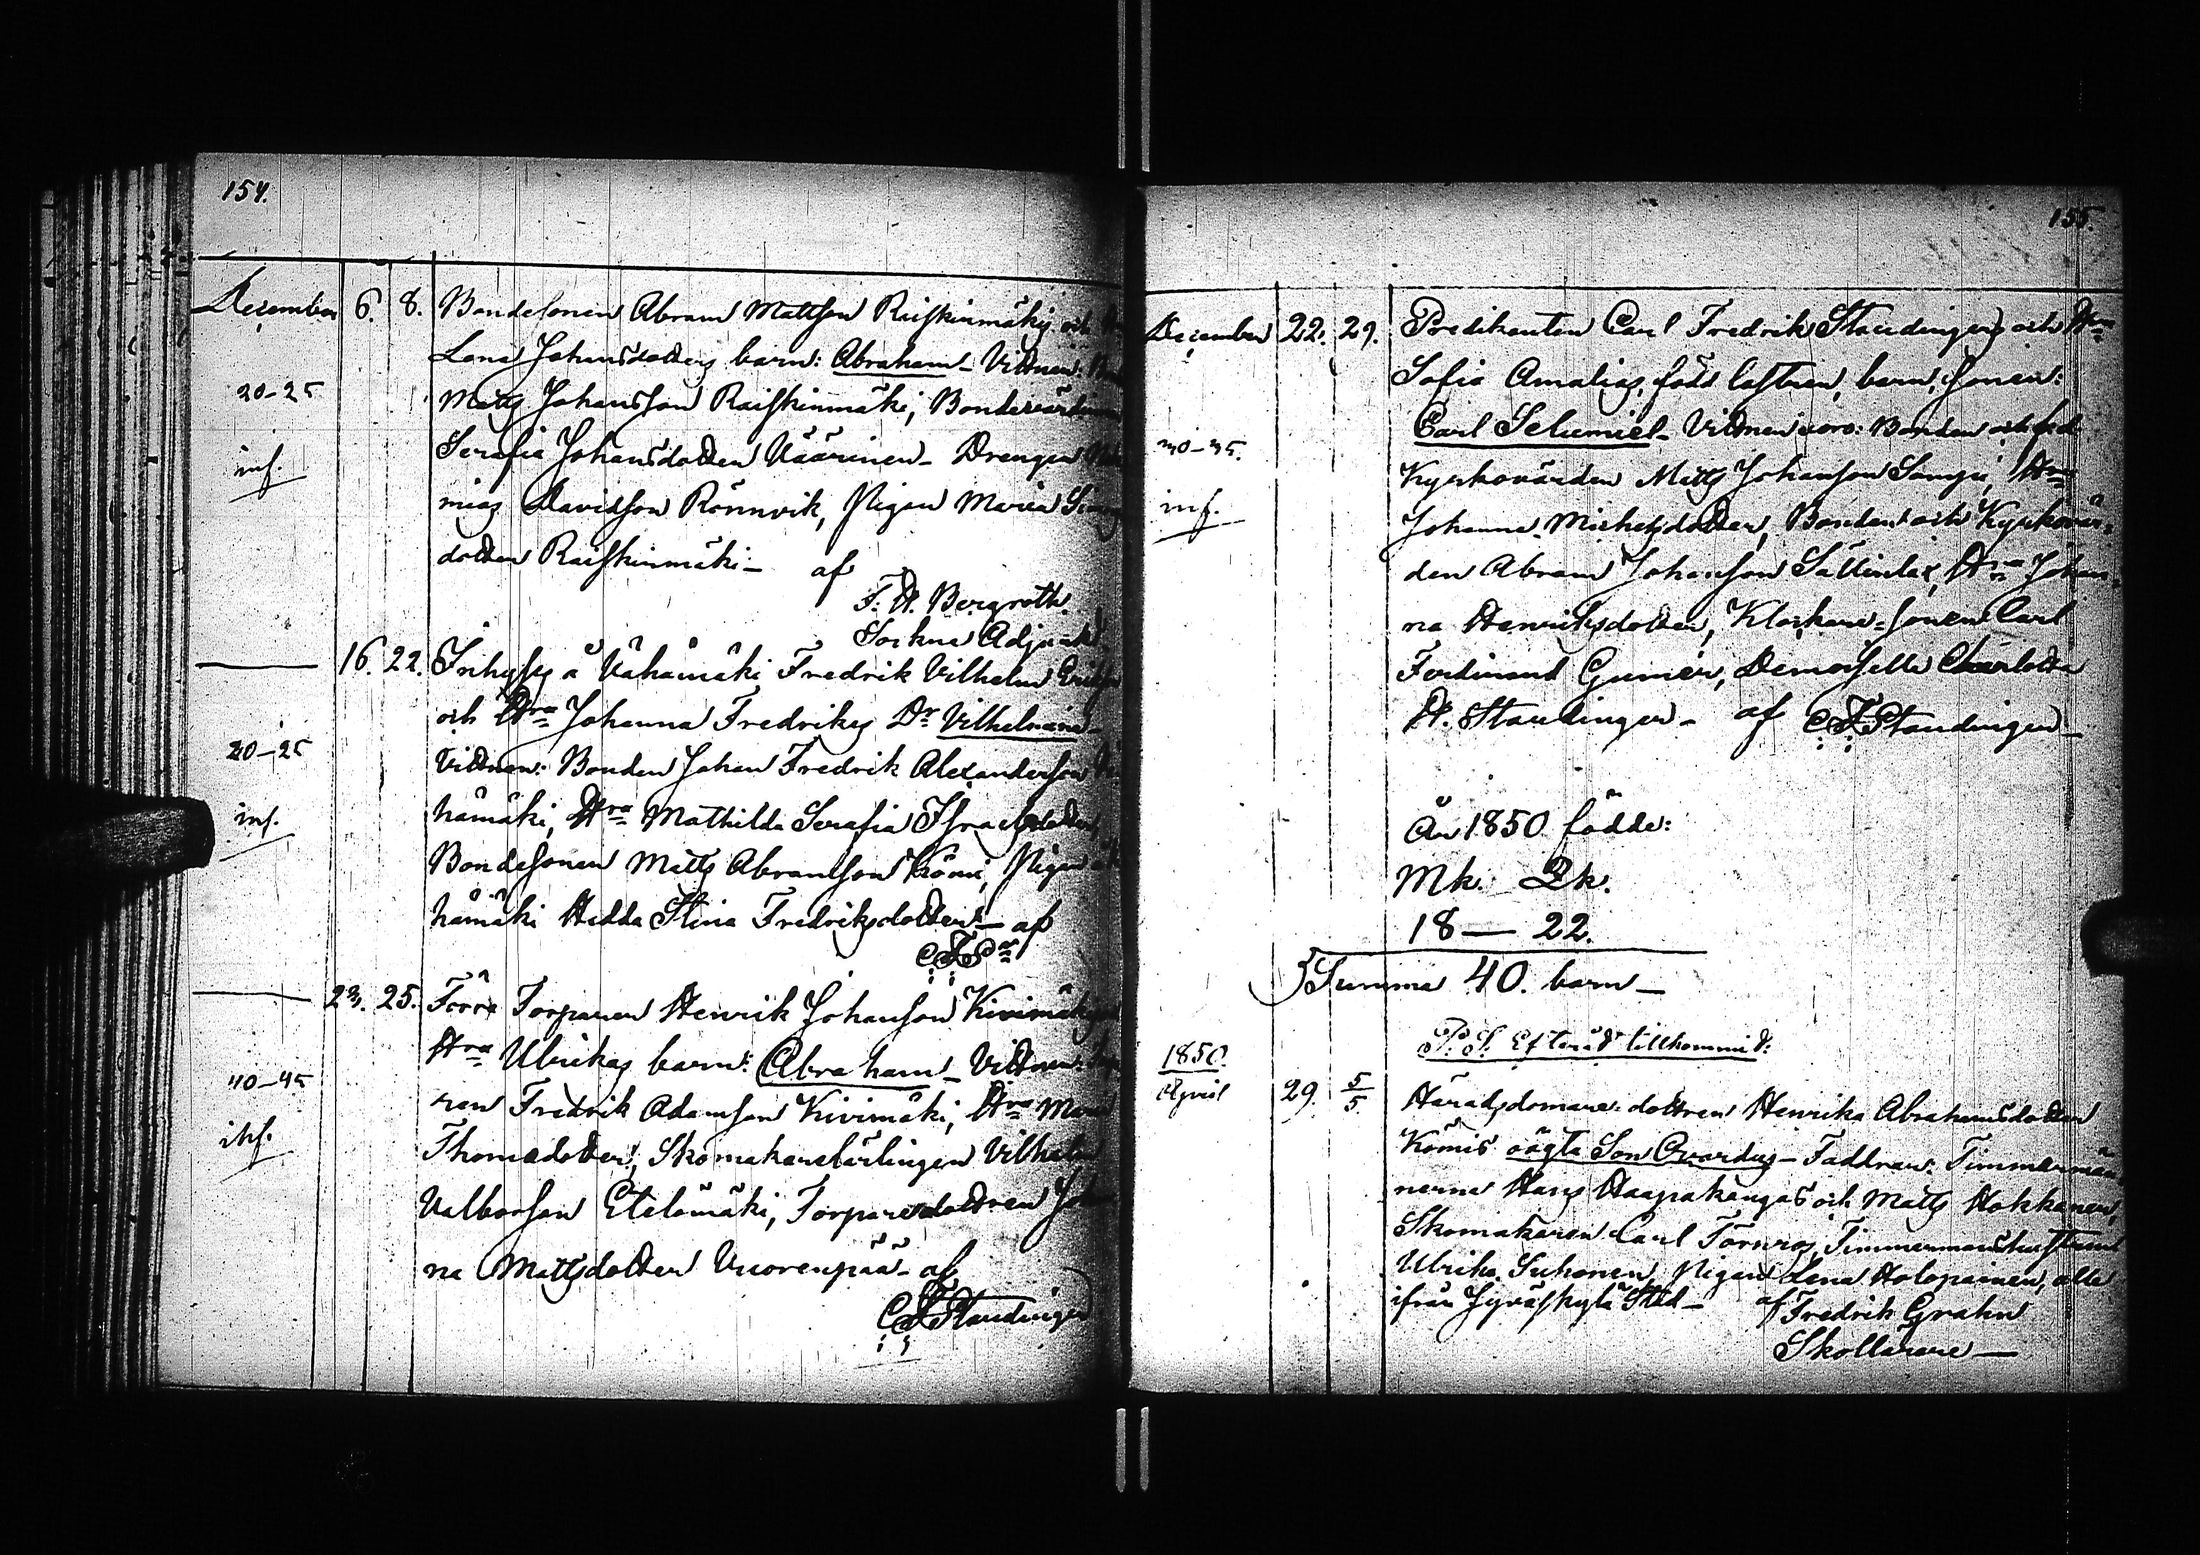 154.
December 6. 8. Bondesonen Abram Mattson Raiskinmäkis och
Lena Johansdotters barn: Abraham - Vittnen:
20-25
Matts Johansson Raiskinmäki, Bondevärdinnan
Serafia Johansdotter Väärinen - Drengen
inf.
mias Davidson Rönnvik, Pigan Maria
dotter Raiskinmäki - af
F. H. Bergroth.
Sockne Adjunkt.
16. 22. Inhyses å Vähämäki Fredrik Vilhelm
och Hru Johanna Fredrikas Dr Vilhelmina -
20-25
Vittnen: Bonden Johan Fredrik Alexanderson
hämäki, Hru Mathilda Serafia Israelsdotter,
inf.
Bondesonen Matts Abramson Kömi, Pigan
hämäki Hedda Stina Fredriksdotter - af
C F Sr
23. 25. Förre Torparen Henrik Johanson Kivimäkis
Hru Ulrikas barn: Abraham - Vittnen:
40-45
ren Fredrik Adamson Kivimäki, Hru Maria
Thomasdotter, Skomakarelärlingen Vilhelm
inf.
Valborson Etelämäki, Torparedottren
na Mattsdotter Vuorenpää - af
C F Staudinger
155.
December 22. 29. Predikanten Carl Fredrik Staudingers och Hru
Sofia Amalias, född Castren, barn, sonen:
Carl Selumiel - Vittnen voro: Bonden och fd
30-35.
Kyrkovärden Matts Johanson Sampi, Hru
inf.
Johanna Michelsdotter, Bonden och Kyrkovär=
den Abram Johanson Sällinlax, Hru Johan=
na Henriksdotter, Klockare=sonen Carl
Ferdinand Gumér, Demoiselle Charlotta
H. Staudinger - af C F Staudinger -
År 1850 födde:
Mk. Qk.
18 — 22.
Summa 40. barn -
P. S. Efteråt tillkommit:
1850.
April 29. 5/5. Häradsdomare-dottren Henrika Abrahamsdotter
Kömis oägta Son Evardus - Faddrar: Timmermän
nerna Hans Haapakangas och Matts Hokkanen,
Skomakaren Carl Törnros, Timmermanshustrun
Ulrika Suhonen, Pigan Lena Holopainen, alla
ifrån Jyväskylä Stad - af Fredrik Grahn
Skollärare -